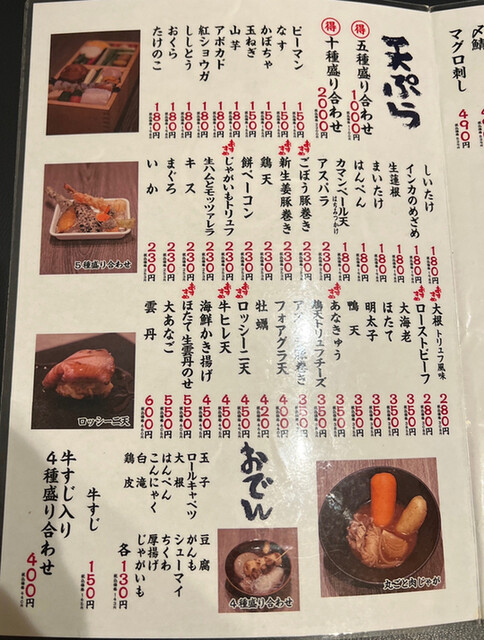 〆鯖
マグロ刺し 490円
天ぷら
得 五種盛り合わせ 1000円
得 十種盛り合わせ 2000円
ピーマン 150円
なす 150円
かぼちゃ 180円
玉ねぎ 180円
山芋 180円
アボカド 180円
紅ショウガ 180円
ししとう 180円
おくら 180円
たけのこ 180円
しいたけ 180円
インカのめざめ 180円
生蓮根 180円
まいたけ 180円
はんぺん 180円
カマンベール天 180円
アスパラ 230円
ごぼう豚巻き 230円
新生姜豚巻き 230円
鶏天 230円
餅ベーコン 230円
じゃがいもトリュフ 230円
生ハムとモッツァレラ 230円
キス 230円
まぐろ 230円
いか 230円
5種盛り合わせ
大根 トリュフ風味 280円
ローストビーフ 280円
大海老 350円
ほたて 350円
明太子 350円
鴨天 350円
あなきゅう 350円
鶏天トリュフチーズ 350円
豚巻き 350円
フォアグラ天 400円
牡蠣 420円
ロッシーニ天 450円
牛ヒレ天 450円
海鮮かき揚げ 450円
ほたて生雲丹のせ 450円
大あなご 500円
雲丹 600円
ロッシーニ天
おでん
玉子
ロールキャベツ
大根
はんぺん
こんにゃく
白滝
鶏皮
豆腐
がんも
シューマイ
ちくわ
厚揚げ
じゃがいも
各130円
牛すじ 150円
牛すじ入り
4種盛り合わせ 400円
4種盛り合わせ
丸ごと肉じゃが